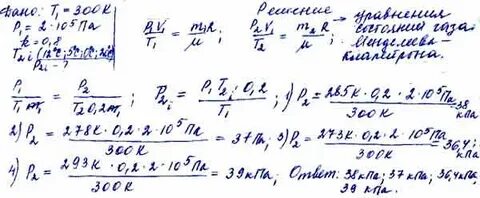 Дано: T₁ = 300K
P₁ = 2·10⁵ Па
k = 0,8
T₂ᵢ (12°C; 5°C; 0°C; 20°C)
P₂ᵢ - ?
Решение
P₁V₁/T₁ = m₁R/μ ; P₂V₁/T₂ = m₂R/μ → уравнения состояния газа Менделеева-Клапейрона.
P₁/T₁m₁ = P₂/T₂0,2m₁ ; P₂ᵢ = P₁T₂ᵢ·0,2/T₁ ; 1) P₂ = 285K·0,2·2·10⁵Па/300K = 38 кПа
2) P₂ = 278K·0,2·2·10⁵Па/300K = 37кПа, 3) P₂ = 273K·0,2·2·10⁵Па/300K = 36,4 кПа;
4) P₂ = 293K·0,2·2·10⁵Па/300K = 39кПа; Ответ: 38кПа; 37кПа; 36,4кПа,
39 кПа.